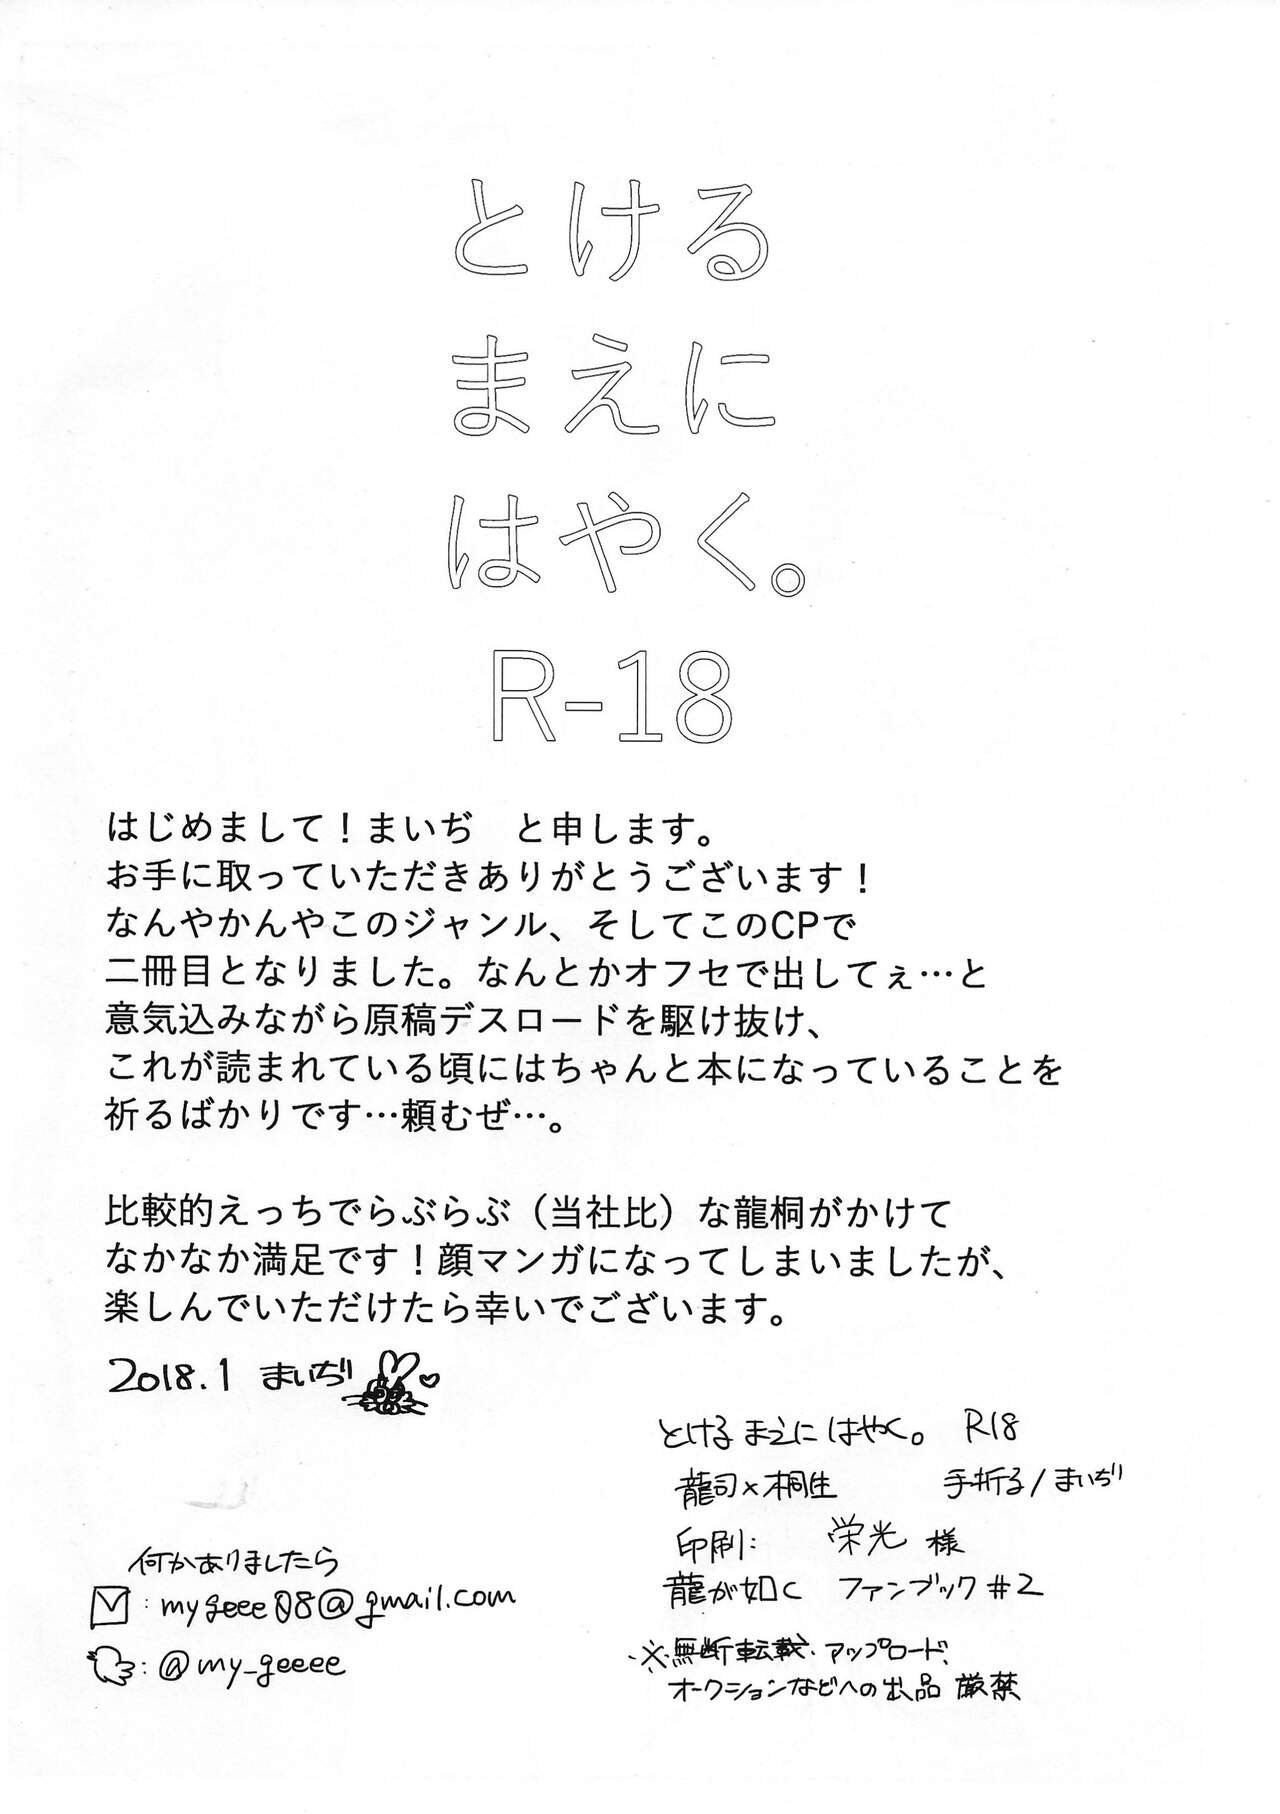 とける
まえに
はやく。
R-18
はじめまして！まいぢ　と申します。
お手に取っていただきありがとうございます！
なんやかんやこのジャンル、そしてこのCPで
二冊目となりました。なんとかオフセで出してぇ…と
意気込みながら原稿デスロードを駆け抜け、
これが読まれている頃にはちゃんと本になっていることを
祈るばかりです…頼むぜ…。
比較的えっちでらぶらぶ（当社比）な龍桐がかけて
なかなか満足です！顔マンガになってしまいましたが、
楽しんでいただけたら幸いでございます。
2018.1 まいぢ
何かありましたら
: mygeee08@gmail.com
: @my_geeee
とけるまえにはやく。 R18
龍司×桐生　手折る/まいぢ
印刷: 栄光 様
龍が如く ファンブック#2
※無断転載・アップロード、
オークションなどへの出品 厳禁